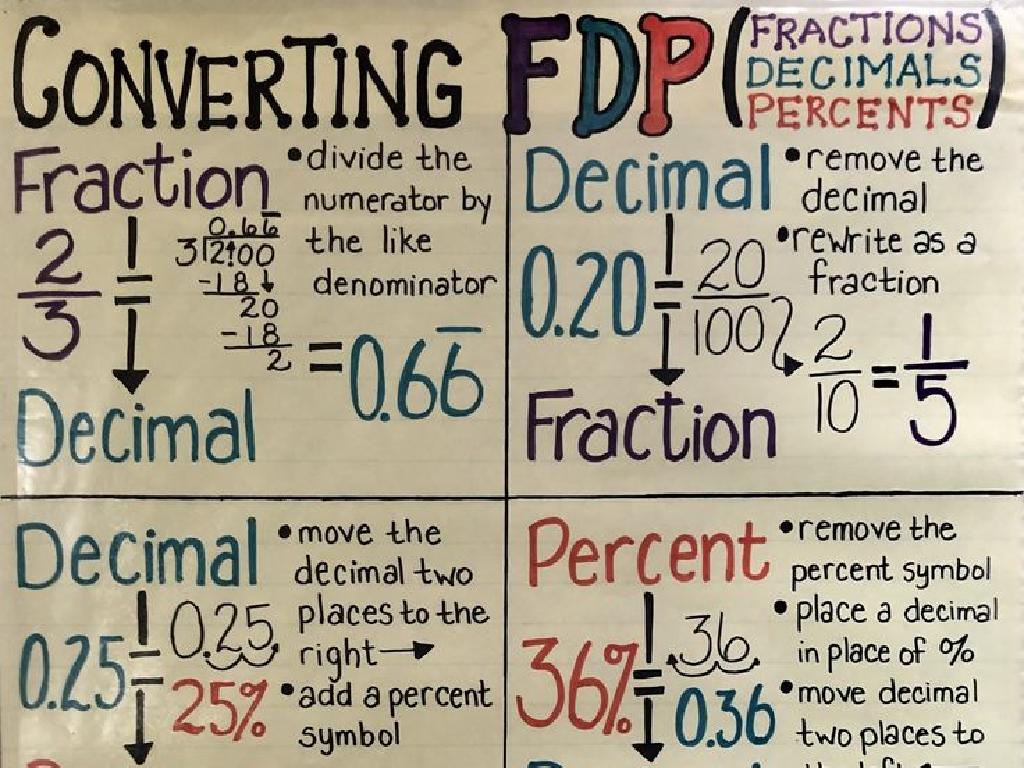 CONVERTING FDP (FRACTIONS
DECIMALS
PERCENTS)
Fraction
• divide the
numerator by
the like
denominator
2/3 =
0.66̅
3)2.00
-18
20
-18
2
= 0.66̅
Decimal
Decimal
• remove the
decimal
• rewrite as a
fraction
0.20 = 20/100
2/10 = 1/5
Fraction
Decimal
• move the
decimal two
places to the
right →
• add a percent
symbol
0.25 = 0.25.
25%
Percent
• remove the
percent symbol
• place a decimal
in place of %
• move decimal
two places to
36% = .36.
0.36